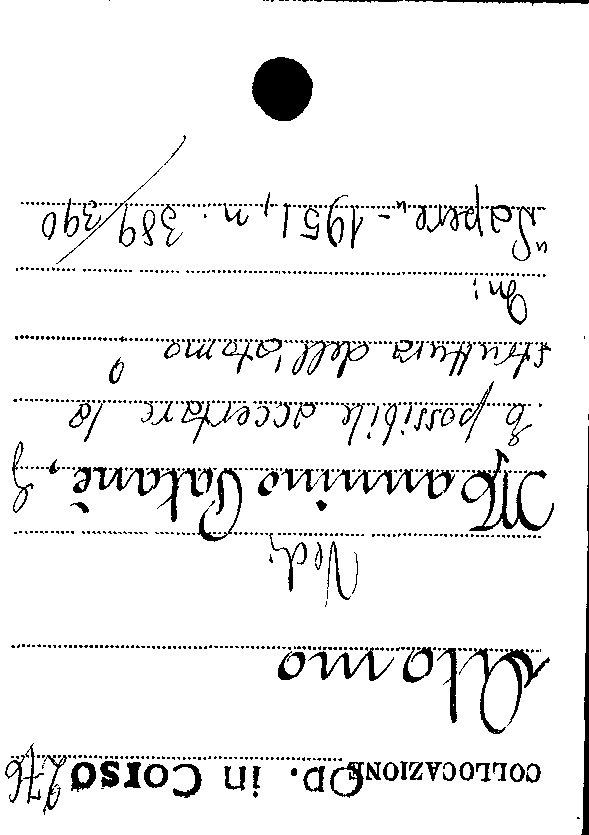 COLLOCAZIONE OD. in Corso 276
Atomo
Vedi
Mannino Patanè, G
È possibile accertare la
struttura dell'atomo?
In:
"Sapere" - 1951, n. 389/390